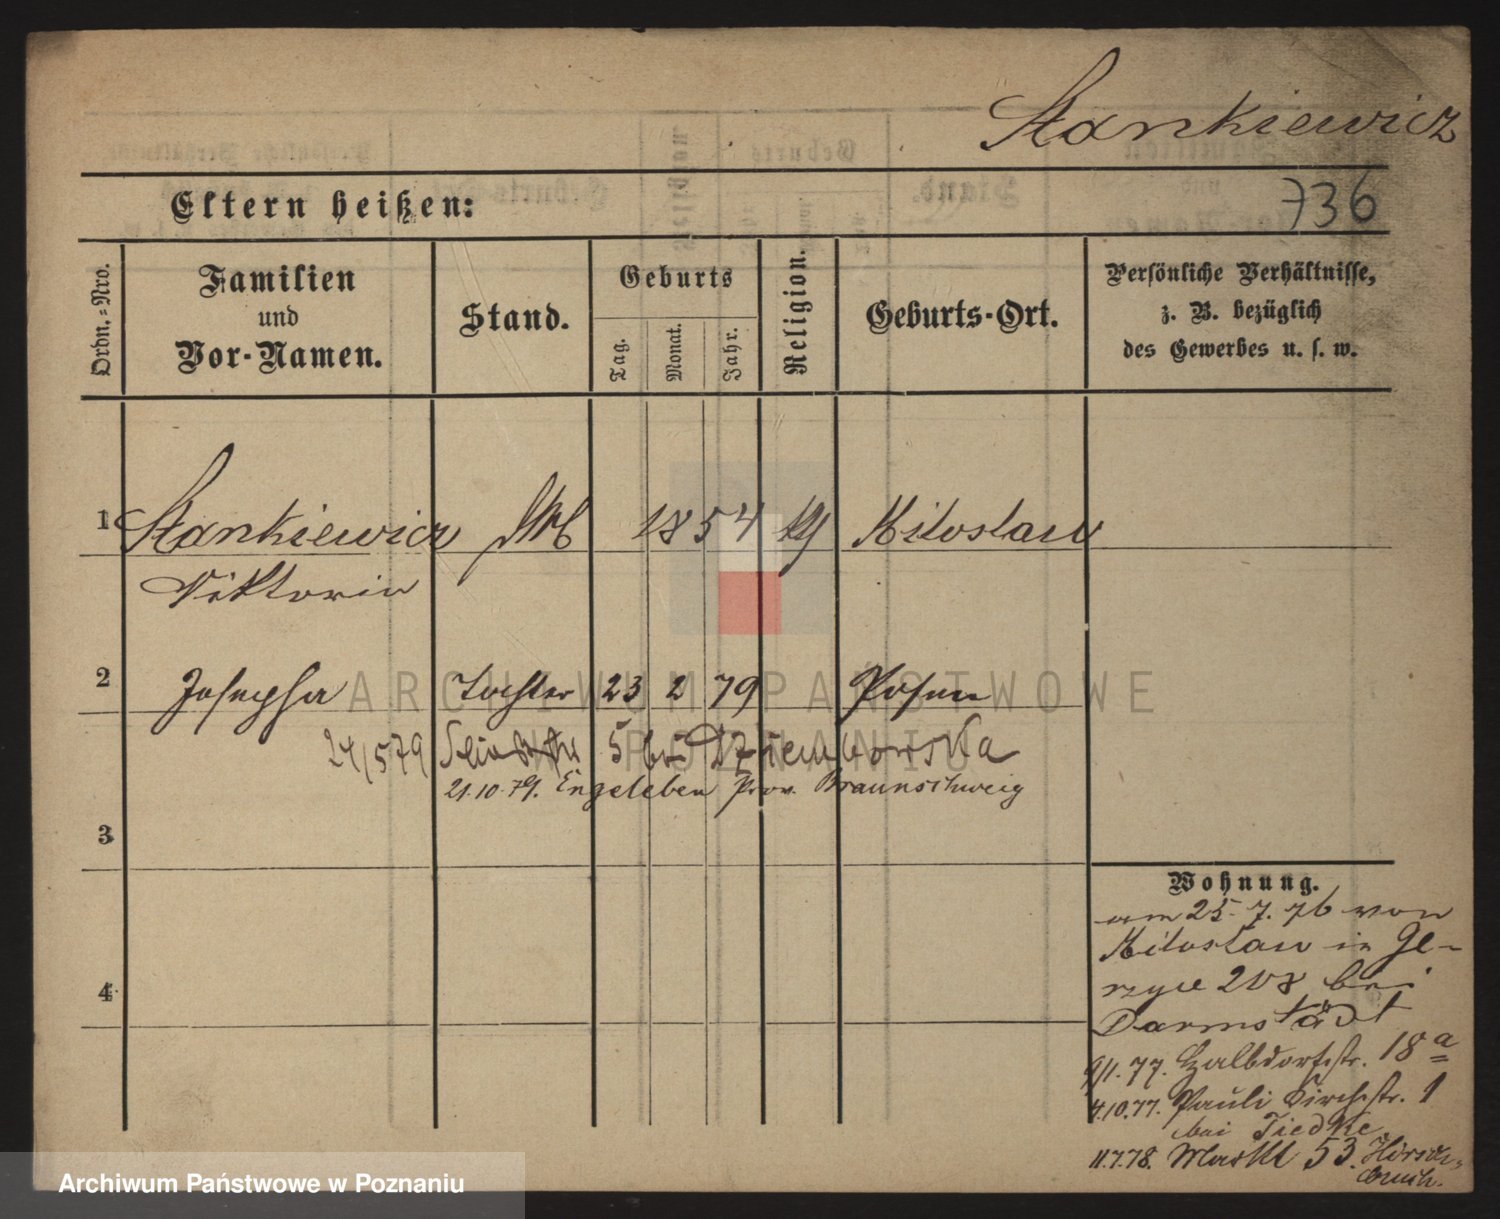 Stankiewicz
Eltern heißen:
736
Ordn.-Nro.
Familien
und
Vor-Namen.
Stand.
Geburts
Tag.
Monat.
Jahr.
Religion.
Geburts-Ort.
Persönliche Verhältnisse,
z. B. bezüglich
des Gewerbes u. s. w.
1 Stankiewicz 1854 Miloslaw
Viktoria
2 Josepha Tochter 23 2 79 Posen
24/5 79 5 bei Dziembowska
21.10.79. Engeleben Prov. Braunschweig
3
4
Wohnung.
am 25.7.76 von
Miloslaw in Je-
rzyce 208 bei
Darmstädt
9/1.77. Halbdorfstr. 18a
4.10.77. Pauli Kirchstr. 1
bei Tiedke
11.7.78. Markt 53.
ARCHIWUM PAŃSTWOWE
W POZNANIU
Archiwum Państwowe w Poznaniu